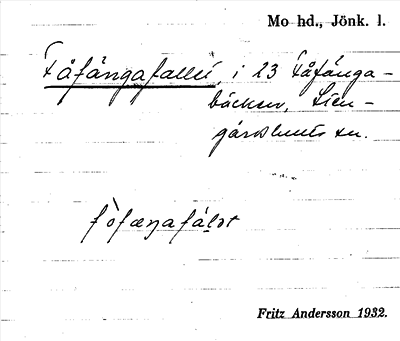 Mo hd., Jönk. l.
Fåfångafallet, i 23 Fåfånga-
bäcken, Sten-
gårdshults sn.
fòfæŋafáḷət
Fritz Andersson 1932.